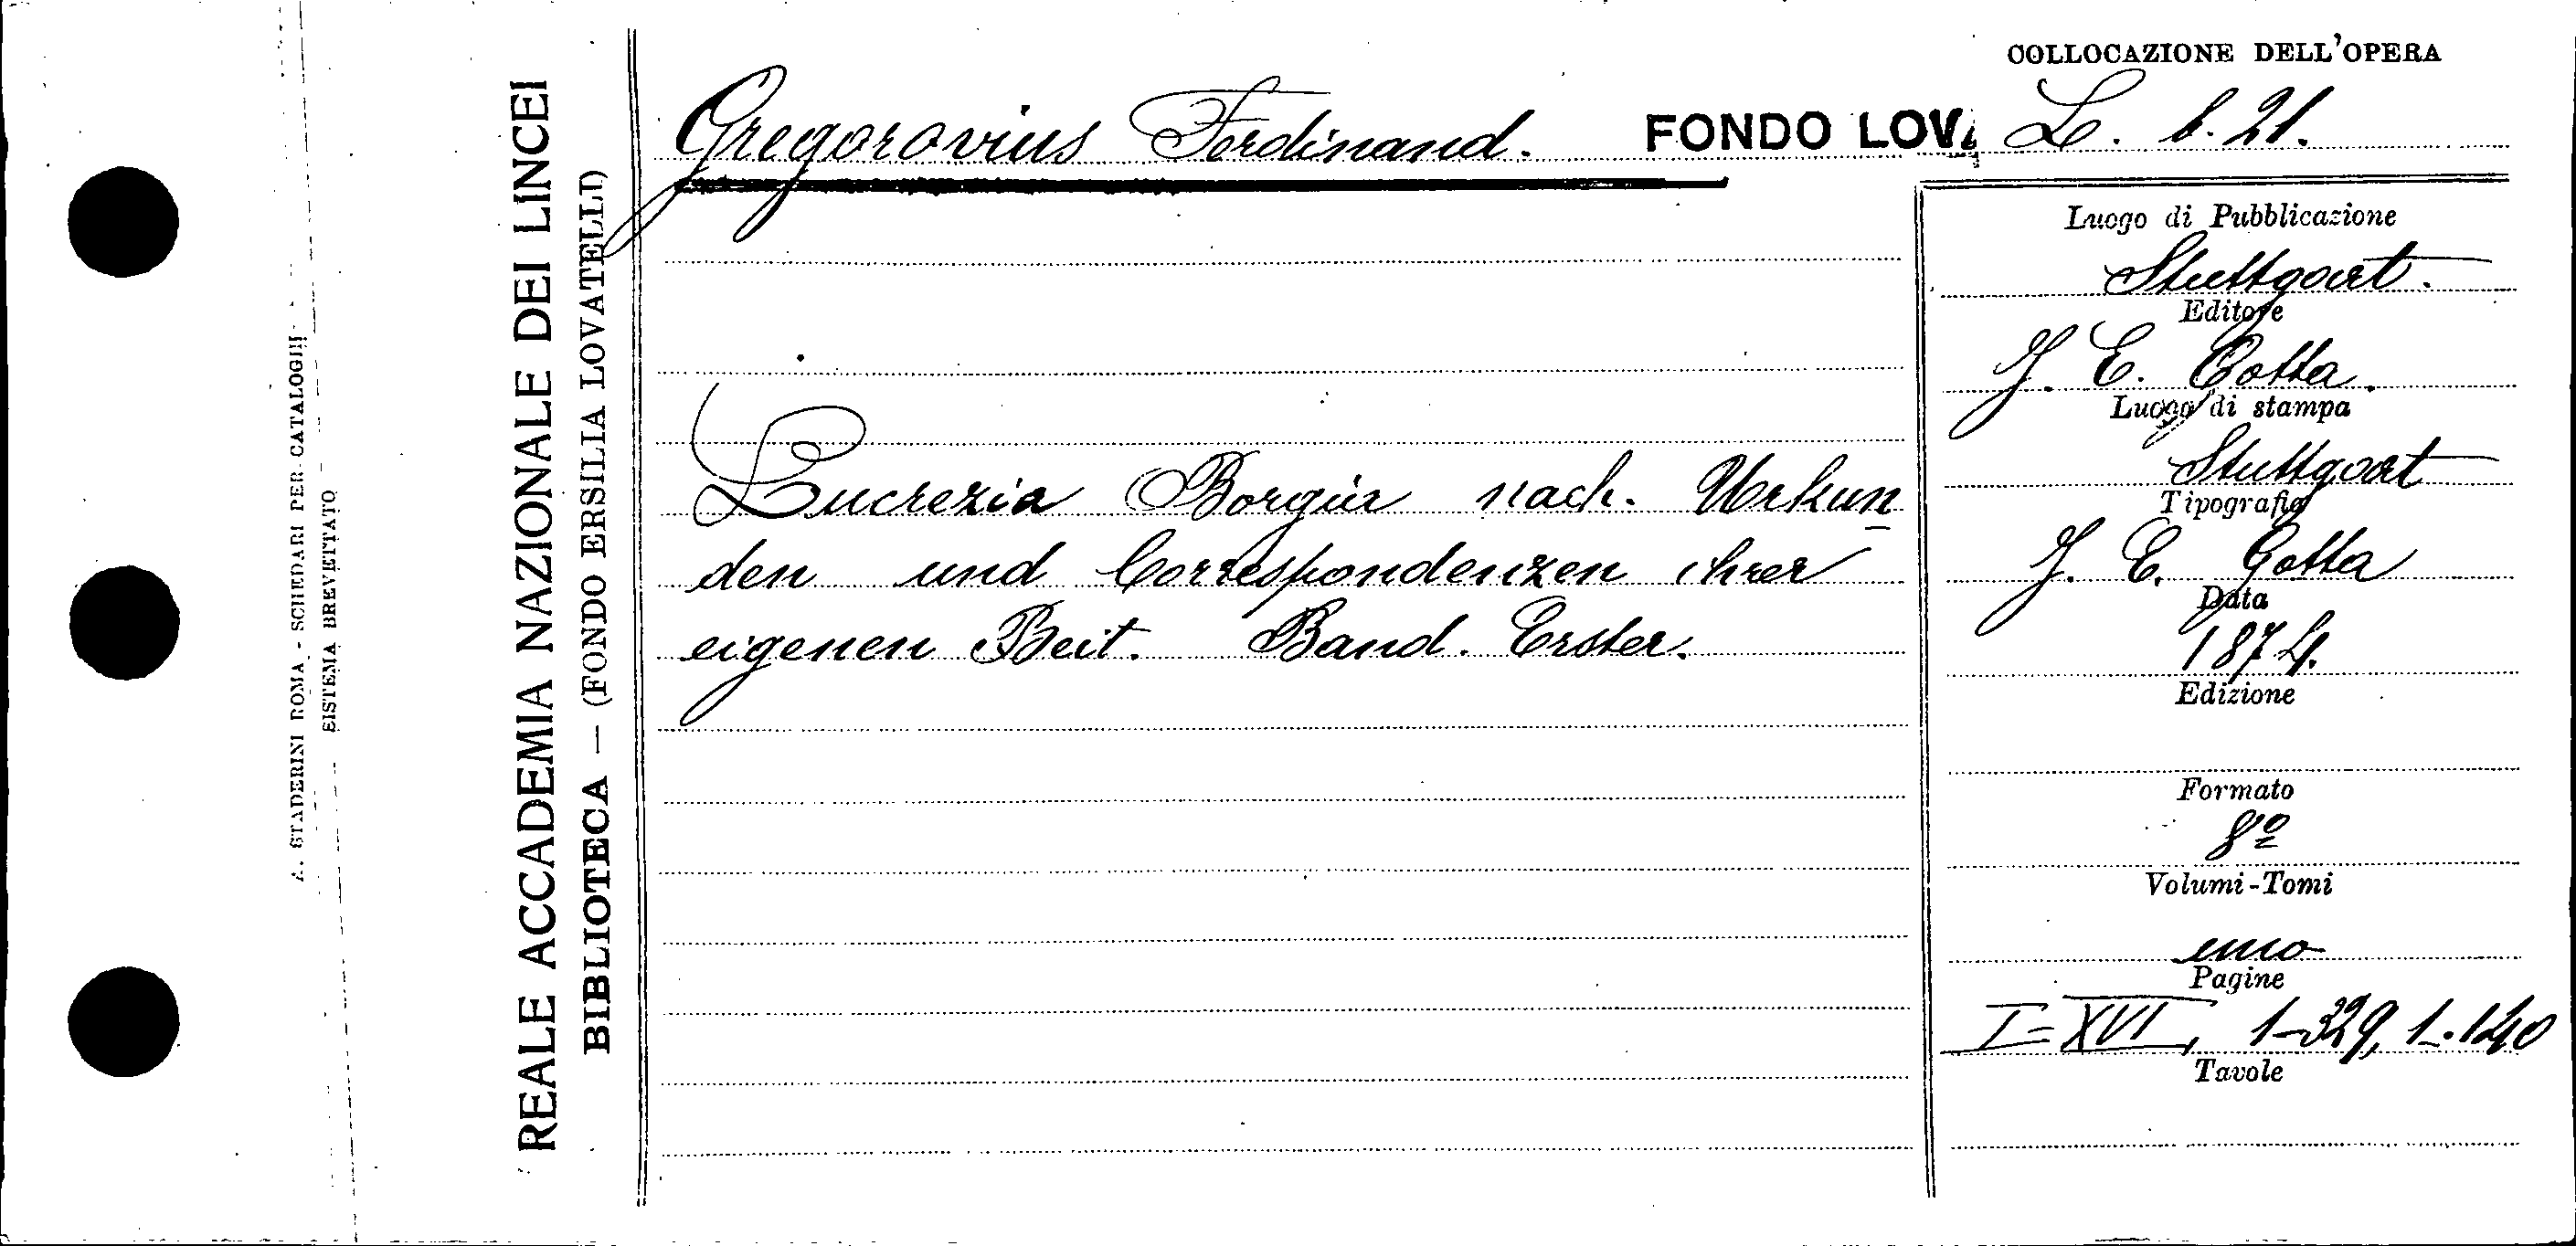 COLLOCAZIONE DELL'OPERA
Gregorovius Ferdinand. FONDO LOV. L. b. 21.
Lucrezia Borgia nach. Urkun
den und Correspondenzen ihrer
eigenen Beit. Band. Erster.
Luogo di Pubblicazione
Stuttgart.
Editore
J. E. Cotta.
Luogo di stampa
Stuttgart
Tipografia
J. E. Cotta
Data
1874.
Edizione
Formato
8º
Volumi-Tomi
uno
Pagine
I=XVI, 1-329, 1-140
Tavole
REALE ACCADEMIA NAZIONALE DEI LINCEI
BIBLIOTECA — (FONDO ERSILIA LOVATELLI)
A. STADERINI ROMA - SCHEDARI PER CATALOGHI
SISTEMA BREVETTATO